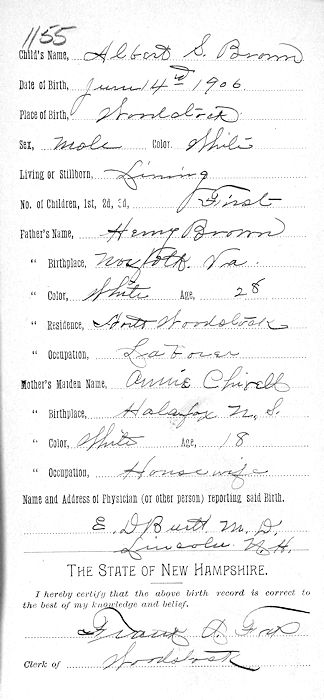 1155
Child's Name, Albert S. Brown
Date of Birth, June 14th 1906
Place of Birth, Woodstock
Sex, Male Color White
Living or Stillborn, Living
No. of Children, 1st, 2d, 3d, First
Father's Name, Henry Brown
" Birthplace, Norfolk Va.
" Color, White Age, 28
" Residence, North Woodstock
" Occupation, Laborer
Mother's Maiden Name, Annie
" Birthplace, Halafox N. S.
" Color, White Age, 18
" Occupation, Housewife
Name and Address of Physician (or other person) reporting said Birth.
E. D Burtt M. D.
Lincoln N. H.
THE STATE OF NEW HAMPSHIRE.
I hereby certify that the above birth record is correct to
the best of my knowledge and belief.
Frank
Clerk of Woodstock